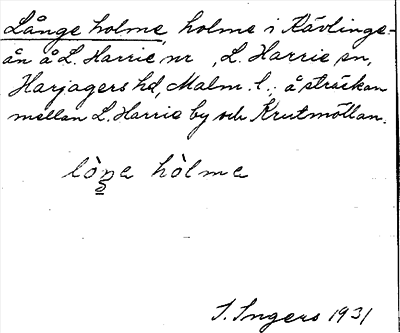 Långe holme, holme i Kävlinge-
ån å L. Harrie nr , L. Harrie sn,
Harjagers hd, Malm. l.; å sträckan
mellan L. Harrie by och Krutmöllan.
lòŋa hòlma
I. Ingers 1931